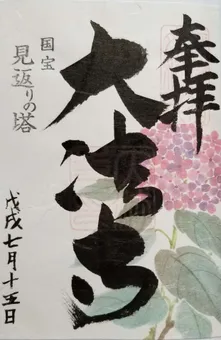 奉拝
大法寺
国宝
見返りの塔
戊戌七月十五日